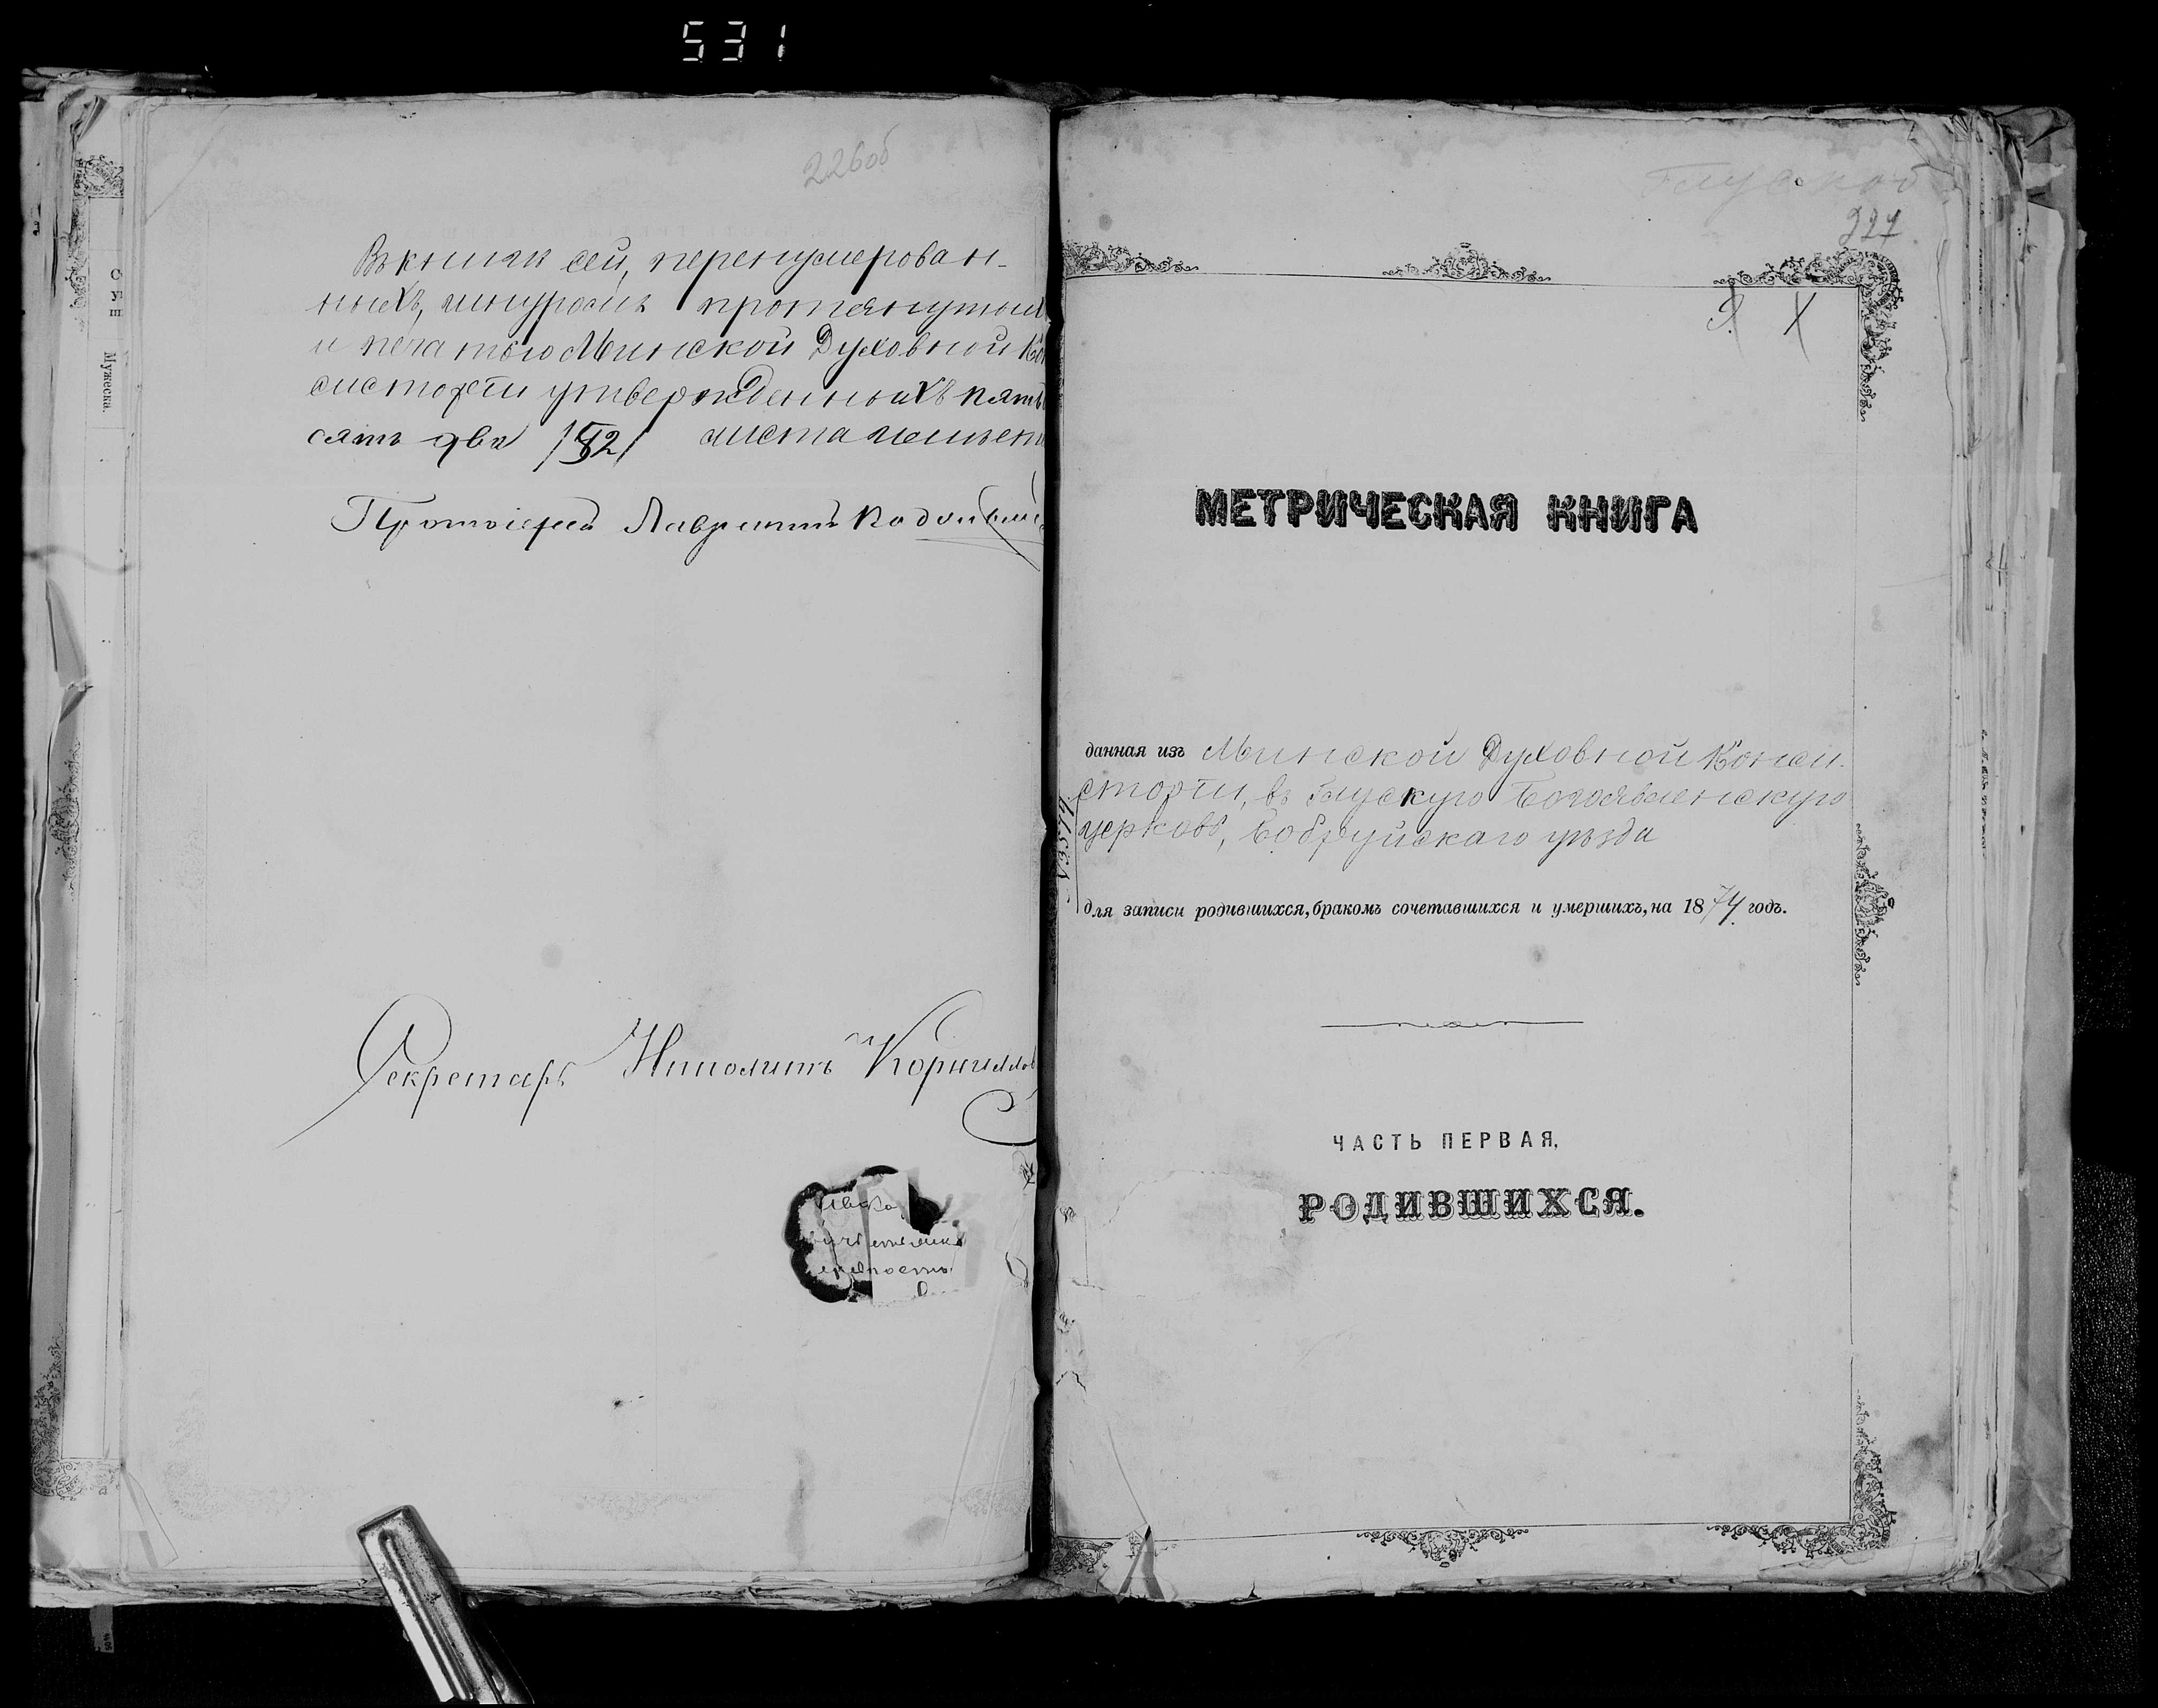 531
226об
Въ книгѣ сей, перенумерован-
ныхъ, шнуромъ протянутых
и печатью Минской Духовной Кон
систоріи утвержденныхъ пять
сятъ два /52/ листа
Протоіерей Лаврентій
Секретарь Иполитъ Корнилов
Мужеска.
Глускої
227
МЕТРИЧЕСКАЯ КНИГА
данная изъ Минской Духовной Конси-
сторіи, въ Глускую Богоявленскую
церковь, Бобруйскаго уѣзда
для записи родившихся, бракомъ сочетавшихся и умершихъ, на 1874 годъ.
ЧАСТЬ ПЕРВАЯ,
РОДИВШИХСЯ.